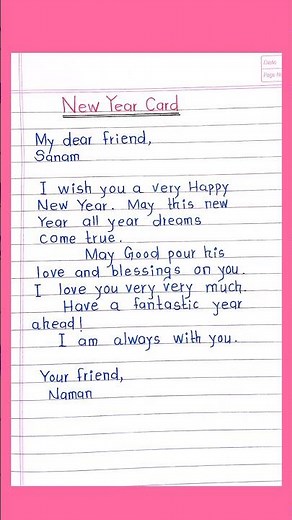 Date
Page No
New Year Card
My dear friend,
Sanam
I wish you a very Happy
New Year. May this new
Year all year dreams
come true.
May Good pour his
love and blessings on you.
I love you very very much.
Have a fantastic year
ahead!
I am always with you.
Your friend,
Naman